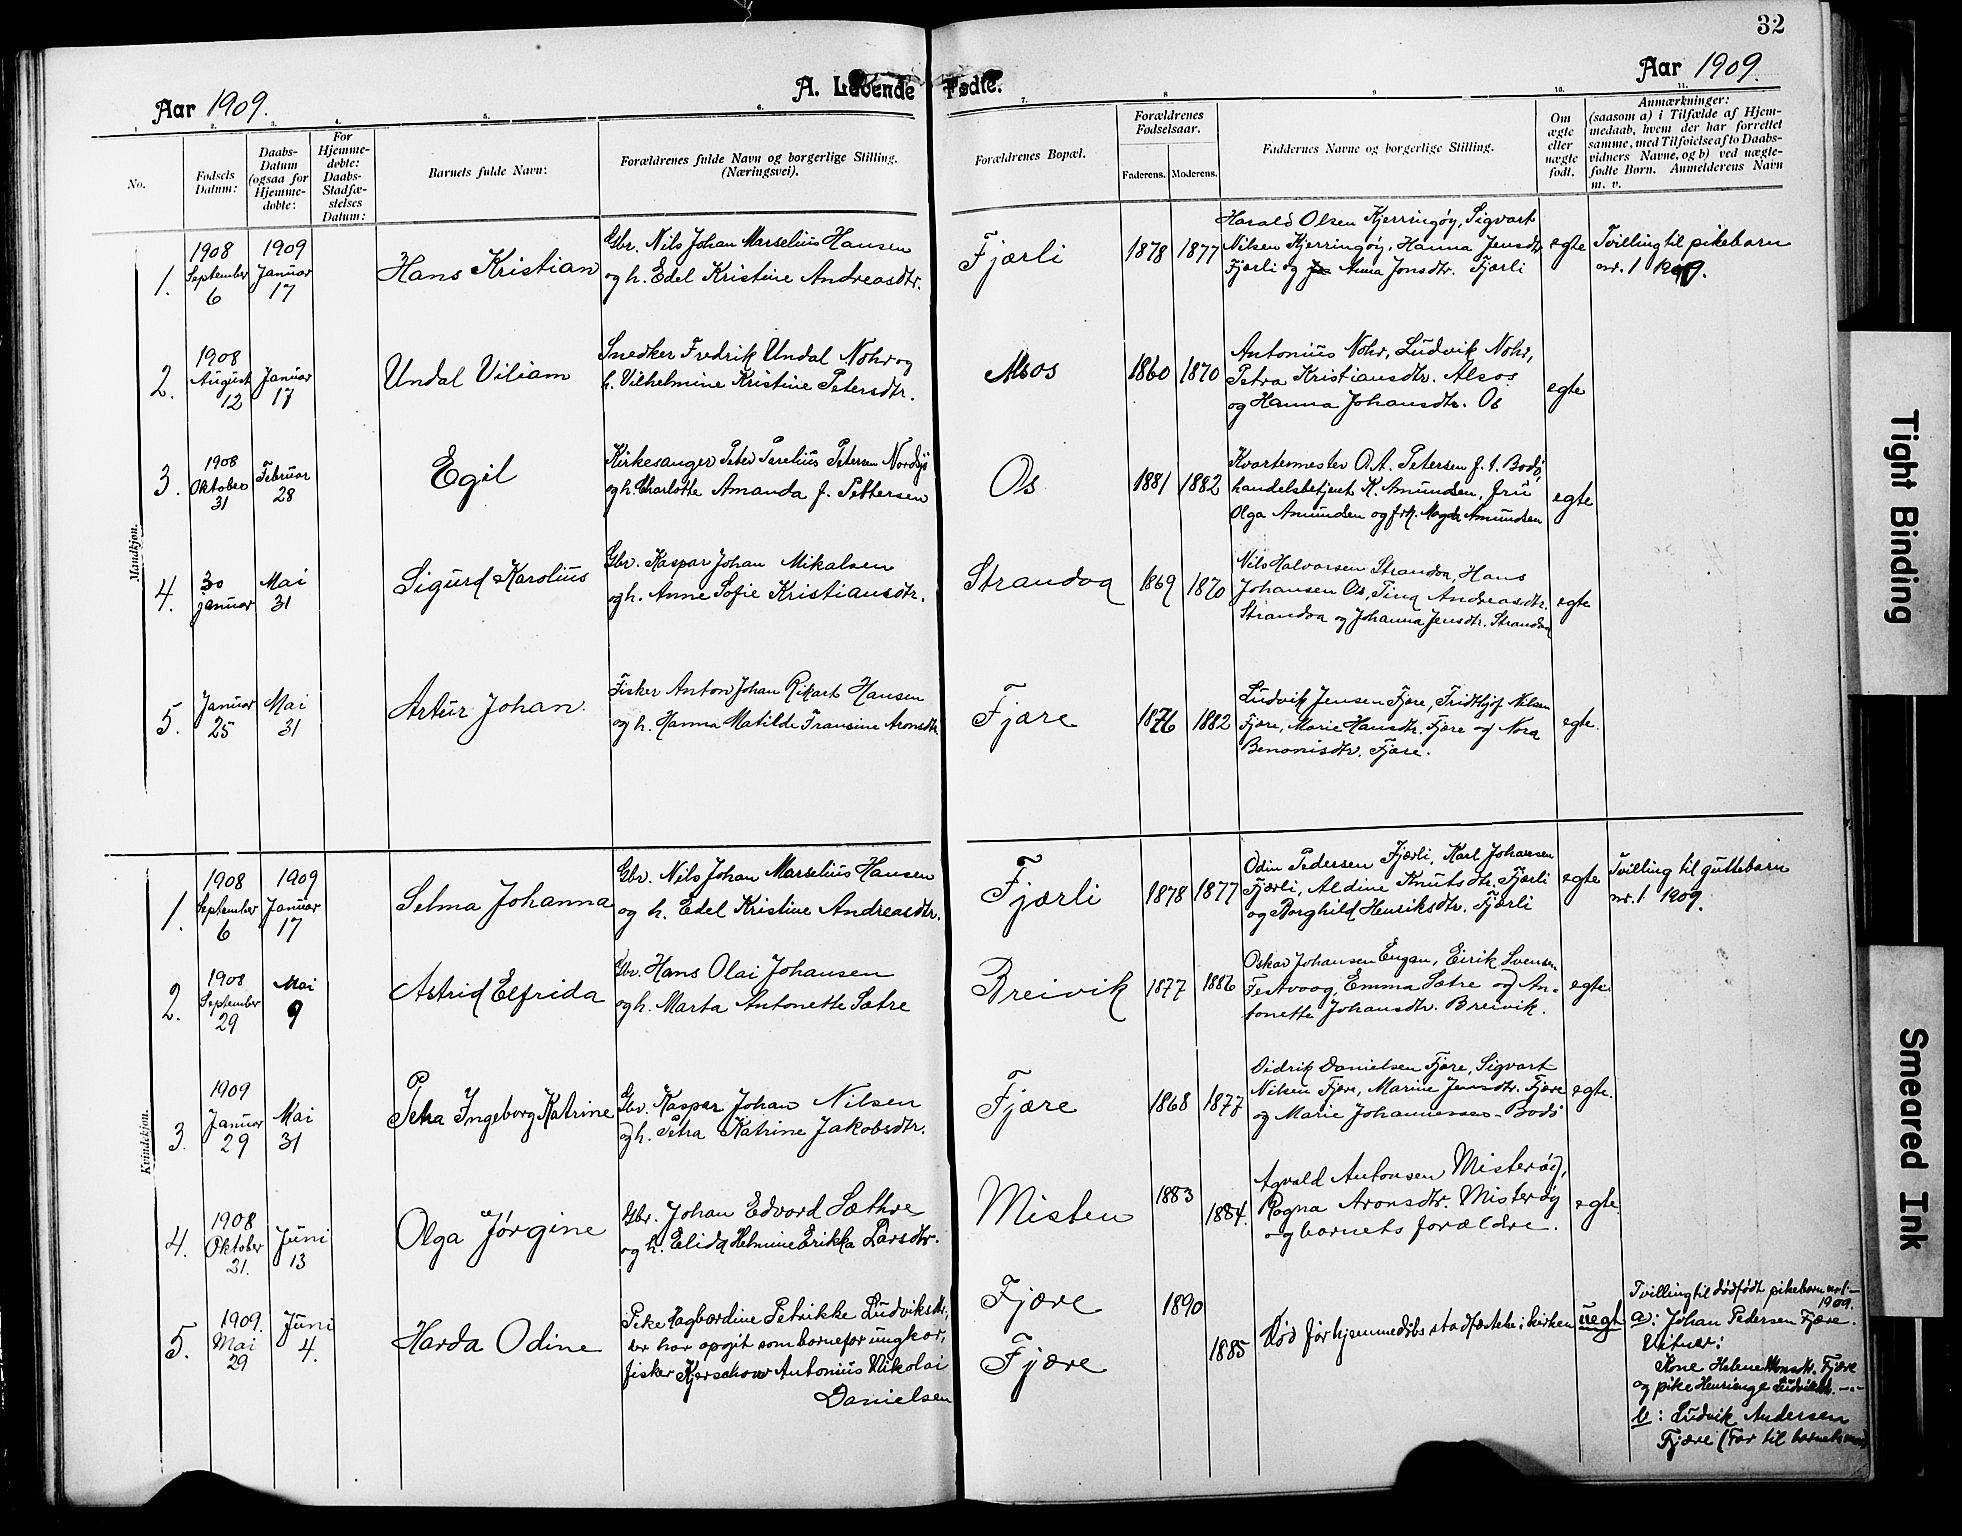 32
Aar 1909.
A. Levende Fødte.
Aar 1909.
1. 2. 3. 4. 5. 6. 7. 8 9 10. 11.
No.
Fødsels
Datum:
Daabs-
Datum
(ogsaa for
Hjemme-
døbte:
For
Hjemme-
døbte:
Daabs-
Stadfæ-
stelses
Datum:
Barnets fulde Navn:
Forældrenes fulde Navn og borgerlige Stilling.
(Næringsvei).
Forældrenes Bopæl.
Forældrenes
Fødselsaar.
Faderens. Moderens.
Faddernes Navne og borgerlige Stilling.
Om
ægte
eller
uægte
født.
Anmærkninger:
(saasom a) i Tilfælde af Hjem-
medaab, hvem der har forrettet
samme, med Tilføielse af to Daabs-
vidners Navne, og b) ved uægte-
fødte Børn. Anmelderens Navn
m. v.
Mandkjøn.
1.
1908
September
6
1909
Januar
17
Hans Kristian
Gbr. Nils Johan Marselius Hansen
og h. Edel Kristine Andreasdtr.
Fjærli
1878
1877
Harald Olsen Kjerringøy, Sigvart
Nilsen Kjerringøy, Hanna Jensdtr.
Fjærli og Anna Jonsdtr. Fjærli
egte
Tvilling til pikebarn
nr. 1 1909.
2.
1908
August
12
Januar
17
Undal Viliam
Snedker Fredrik Undal Nohr og
h. Vilhelmine Kristine Petersdtr.
Alsos
1860
1870
Antonius Nohr, Ludvik Nohr,
Petra Kristiansdtr. Alsos
og Hanna Johansdtr. Os
egte
3.
1908
Oktober
31
Februar
28
Egil
Kirkesanger Peter Parelius Petersen Nordsjø
og h. Charlotte Amanda f. Pettersen
Os
1881
1882
Kvartermester O. A. Petersen f. t. Bodø,
handelsbetjent K. Amundsen, fru
Olga Amundsen og frk. Amundsen
egte
4.
30
januar
Mai
31
Sigurd Karolius
Gbr. Kaspar Johan Mikalsen
og h. Anne Sofie Kristiansdtr.
Strandaa
1869
1870
Nils Halvorsen Strandaa, Hans
Johansen Os, Tina Andreasdtr.
Strandaa og Johanna Jensdtr. Strandaa
egte
5.
Januar
25
Mai
31
Artur Johan
Fisker Anton Johan Rikart Hansen
og h. Hanna Matilde Fransine Aronsdtr.
Fjære
1876
1882
Ludvik Jensen Fjære, Fridthjof Nilsen
Fjære, Marie Hansdtr. Fjære og Nora
Benonisdtr. Fjære.
egte.
Kvindekjøn.
1.
1908
September
6
1909
Januar
17
Selma Johanna
Gbr. Nils Johan Marselius Hansen
og h. Edel Kristine Andreasdtr.
Fjærli
1878
1877
Odin Pedersen Fjærli, Karl Johansen
Fjærli, Aldine Knutsdtr. Fjærli
og Borghild Henriksdtr. Fjærli
egte
Tvilling til guttebarn
nr. 1 1909.
2.
1908
September
29
Mai
9
Astrid Elfrida
Gbr. Hans Olai Johansen
og h. Marta Antonette Sætre
Breivik
1877
1886
Oskar Johansen Engan, Eirik Svensen
Festvoog, Emma Sætre og An-
tonette Johansdtr. Breivik.
egte.
3.
1909
Januar
29
Mai
31
Petra Ingeborg Katrine
Gbr. Kaspar Johan Nilsen
og h. Petra Katrine Jakobsdtr.
Fjære
1868
1877
Didrik Danielsen Fjære, Sigvart
Nilsen Fjære, Marine Jensdtr. Fjære
og Marie Johannessen - Bodø
egte.
4.
1908
Oktober
21.
Juni
13
Olga Jørgine
Gbr. Johan Edvard Sæthre
og h. Elida Helmine Erikka Larsdtr.
Misten
1883
1884.
Agvald Antonsen Misterøy,
Ragna Aronsdtr. Misterøy
og barnets forældre.
egte.
5.
1909.
Mai
29
Juni
4.
Harda Odine
Pike Hagbardine Petrikke Ludviksdtr.,
der har opgit som barnefar ungkar,
fisker Kjerschow Antonius Nikolai
Danielsen
Fjære
Fjære
1890
1885
Død før hjemmedåbs stadfæstelse i kirken
uegt.
Tvilling til dødfødt pikebarn nr 1 -
1909.
a: Johan Pedersen Fjære.
Vitner:
Kone Helene Fjære
og pike Ludviksdtr. -"-
b: Ludvik Andersen
Fjære (Far til barnets mor)
Tight Binding
Smeared Ink